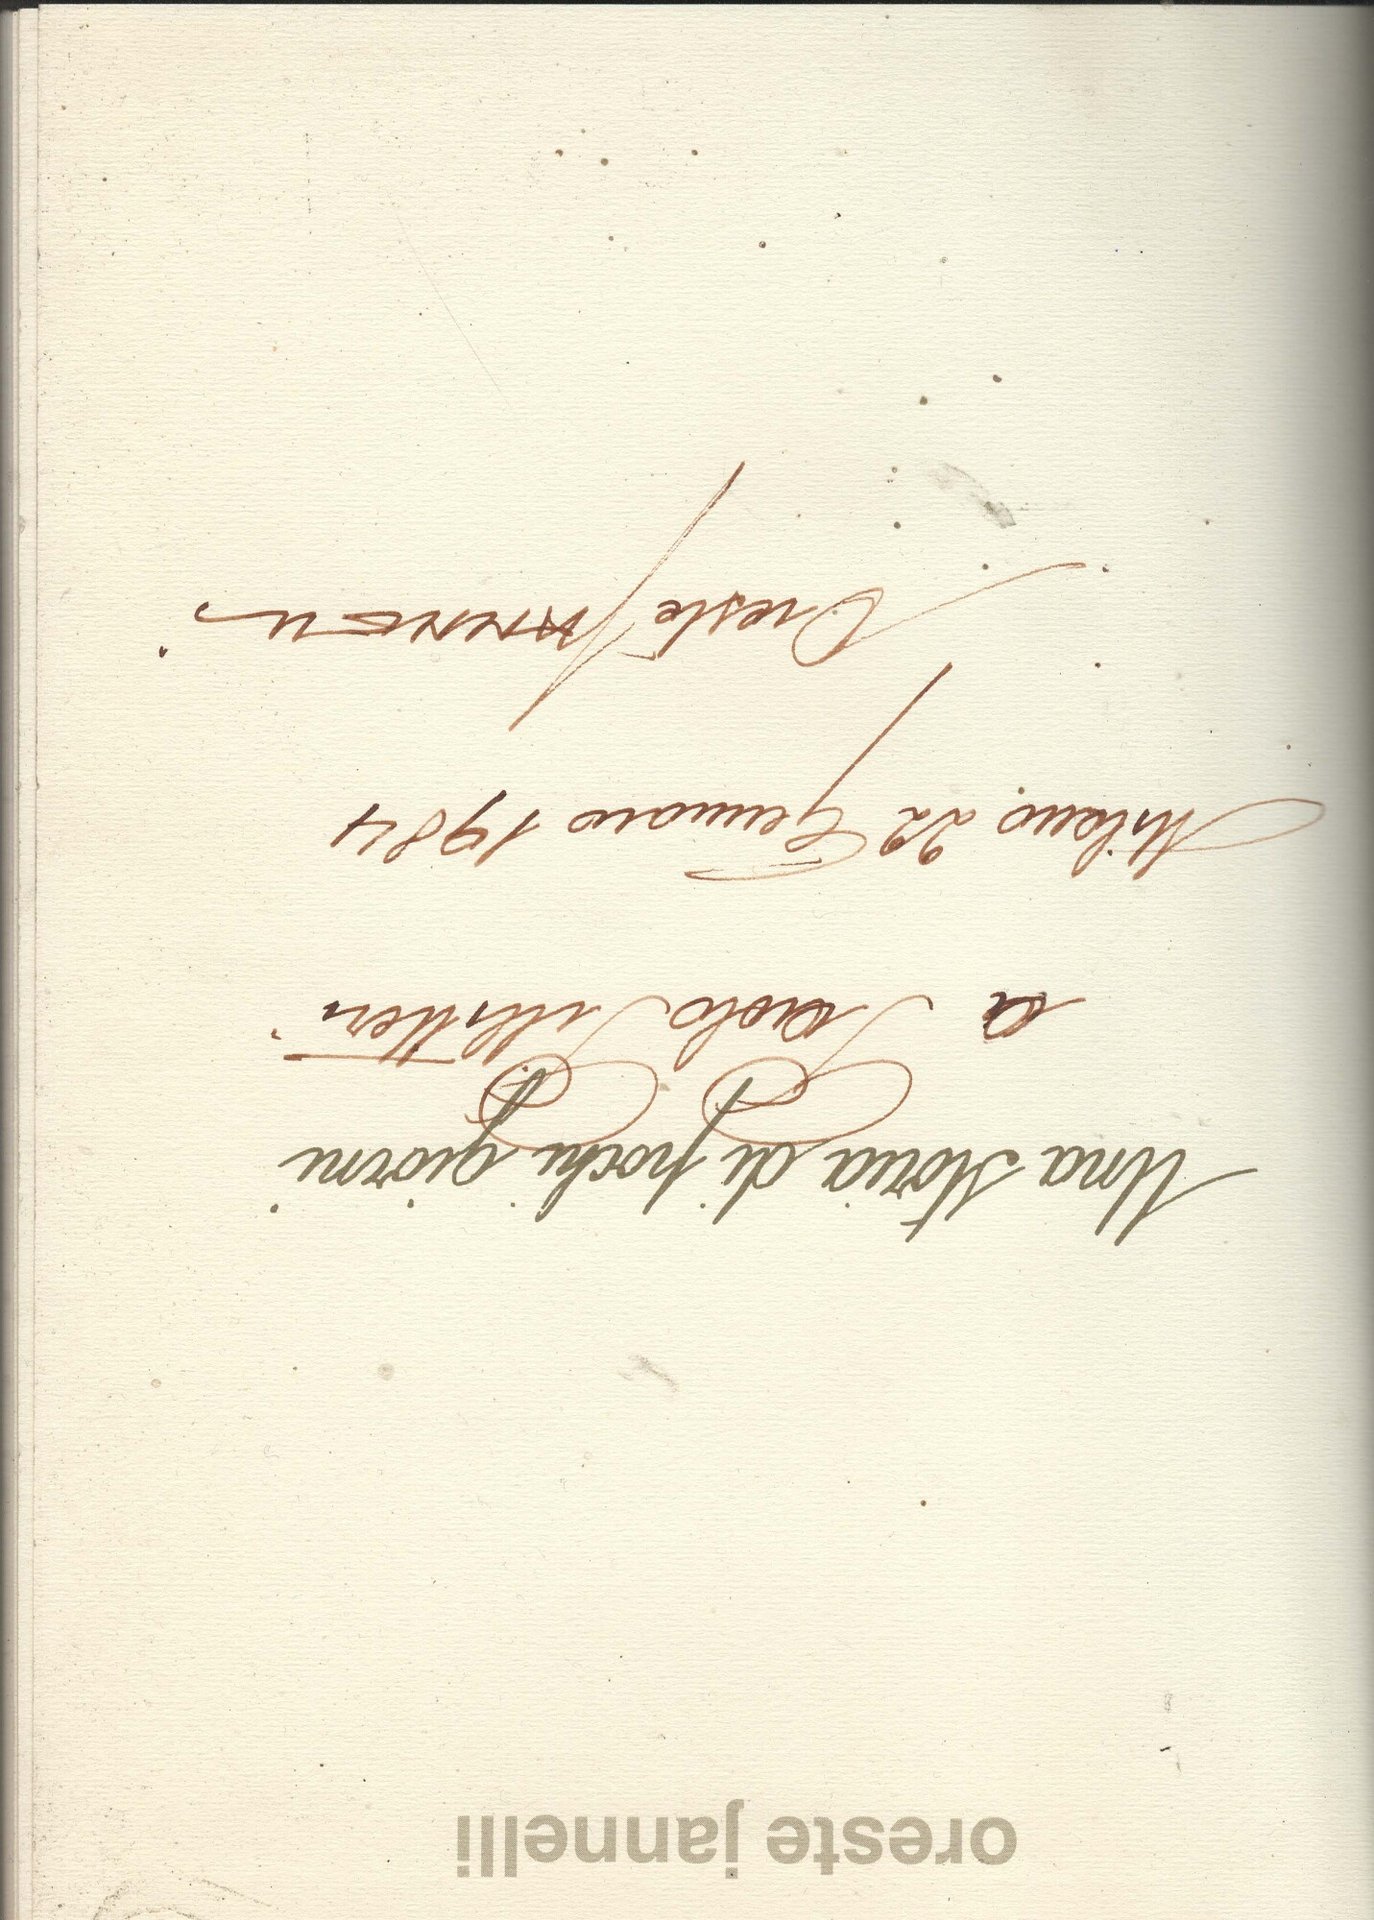 oreste jannelli
Una storia di pochi giorni
a Paolo
Milano, 22 Gennaio 1984
Oreste Jannelli